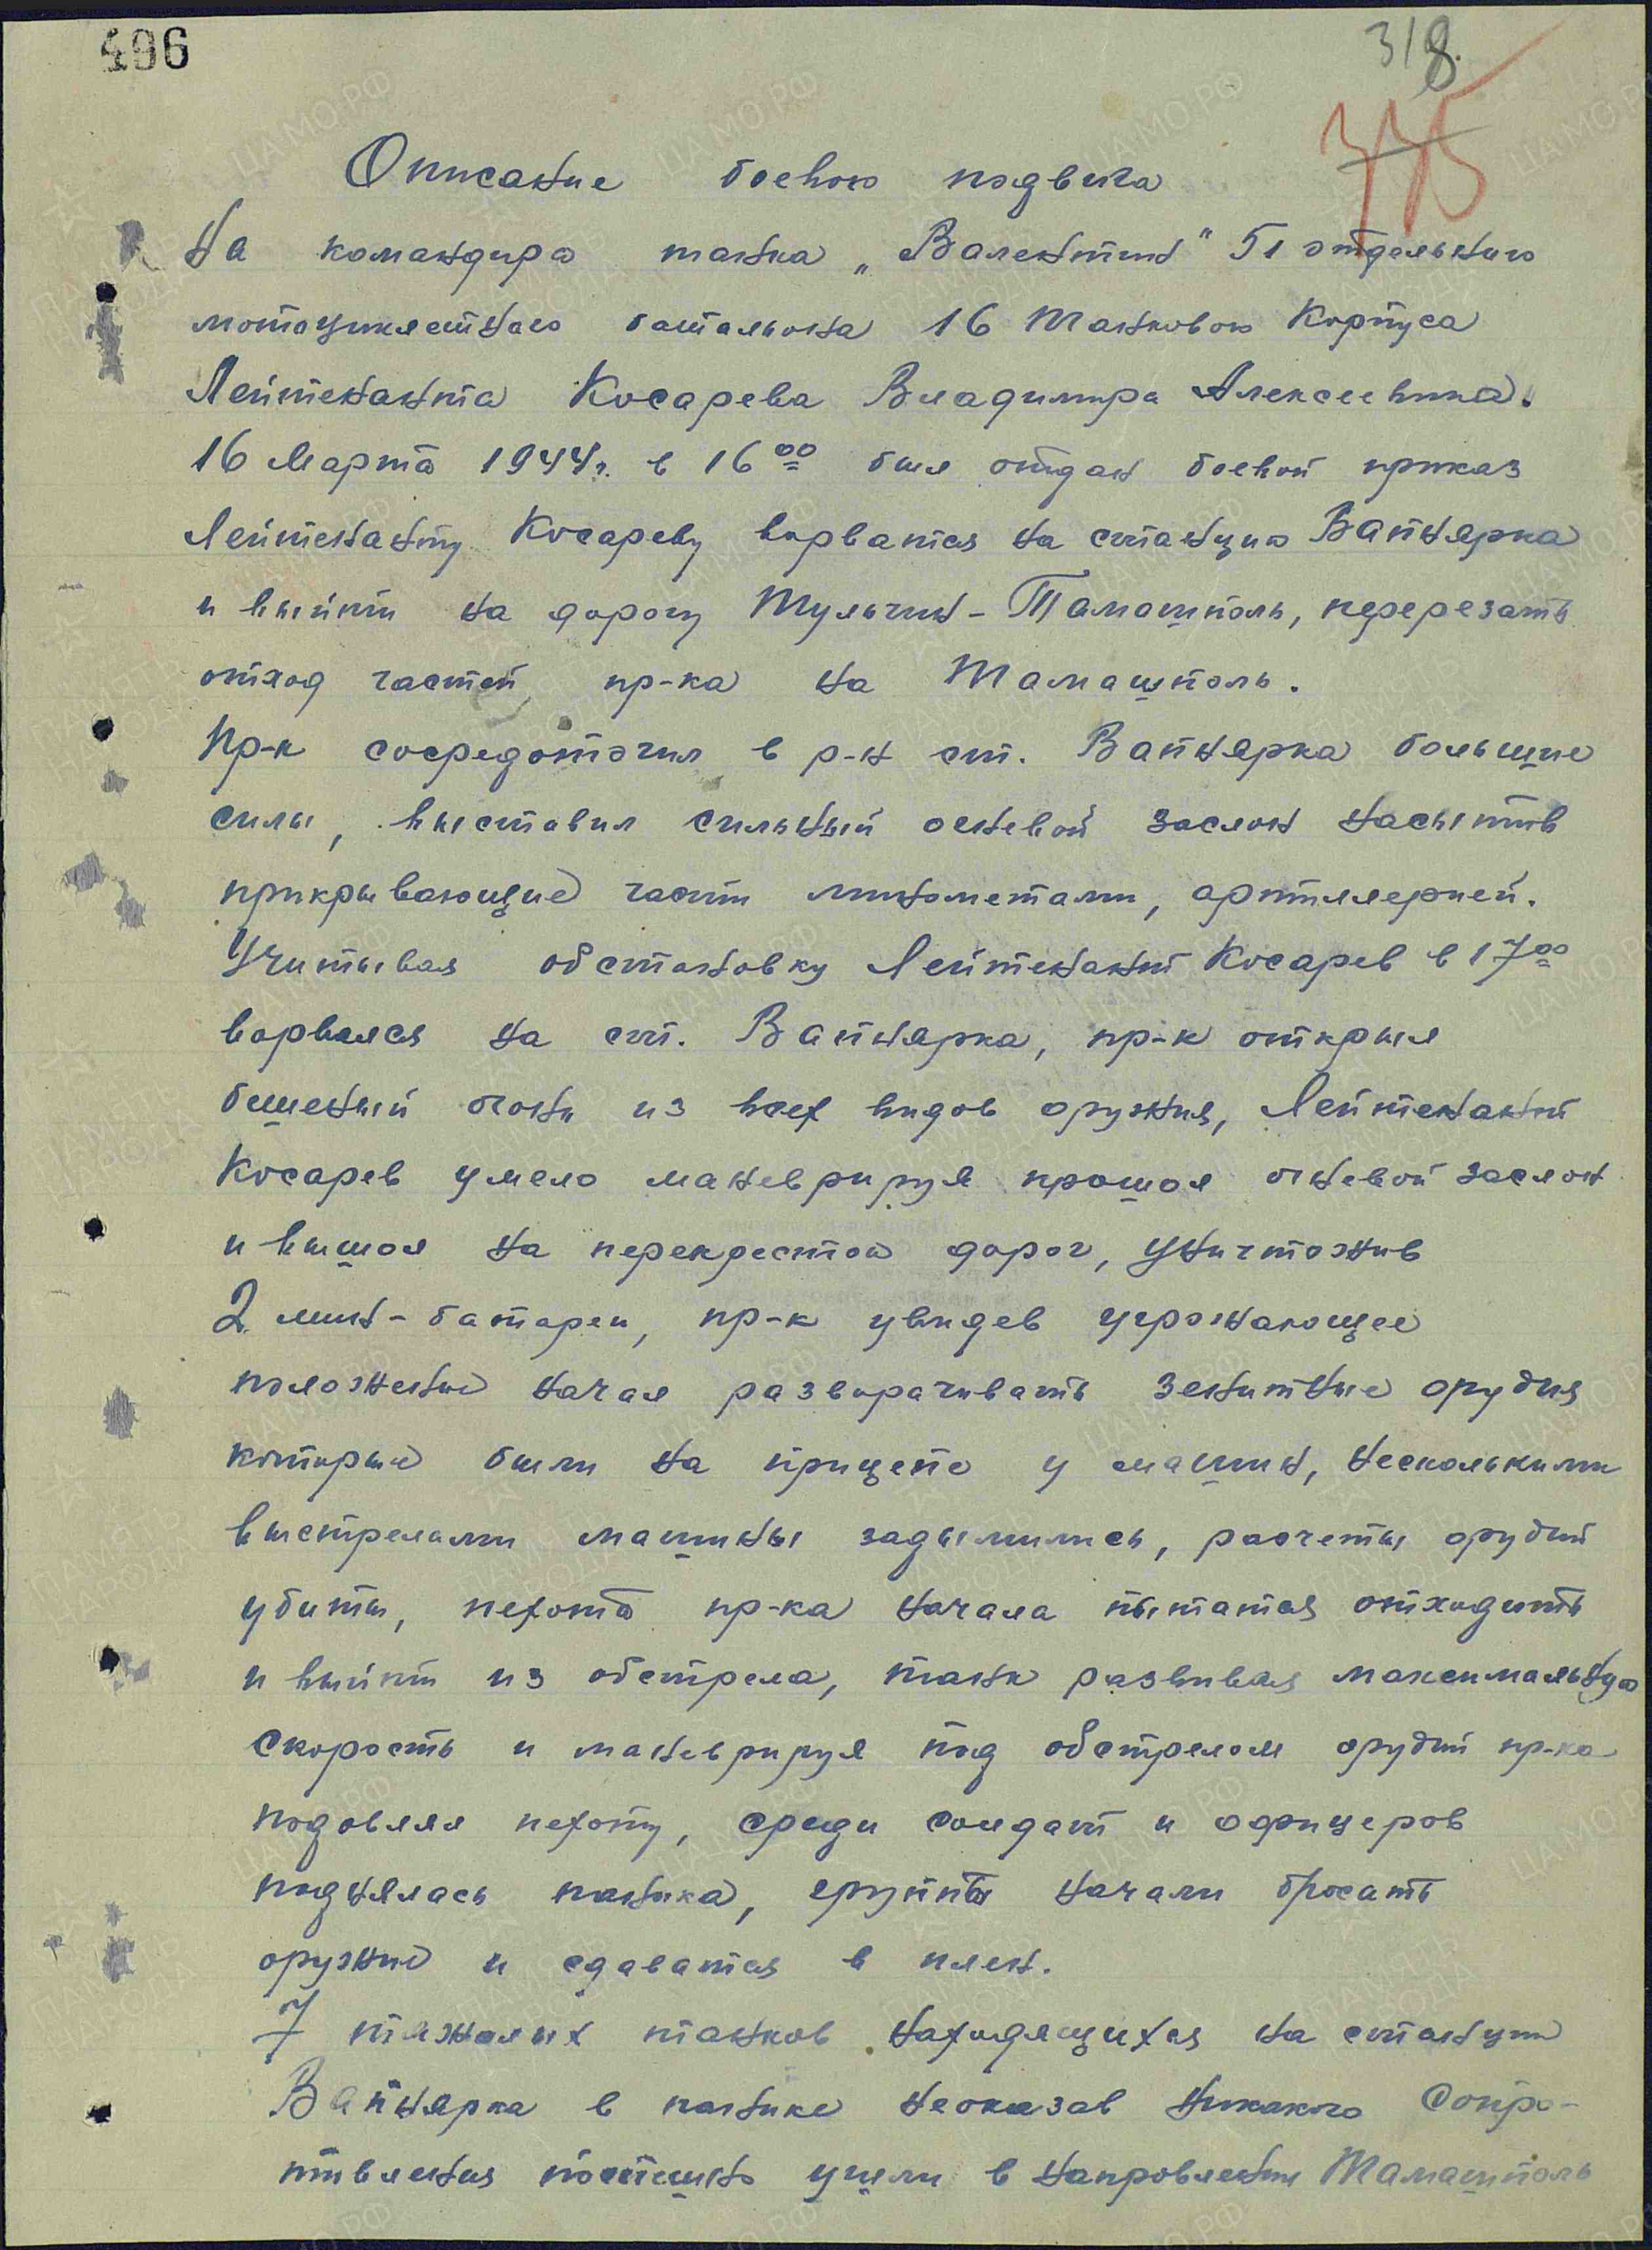 496
318.
335
Описание боевого подвига
На командира танка „Валентин" 51 отдельного
мотоциклетного батальона 16 Танкового Корпуса
Лейтенанта Косарева Владимира Алексеевича.
16 Марта 1944г. в 16 00 был отдан боевой приказ
Лейтенанту Косареву ворватся на станцию Вапнярка
и выйти на дорогу Тульчин - Тамашполь, перерезать
отход частей пр-ка на Тамашполь.
Пр-к сосредоточил в р-н ст. Вапнярка большие
силы, выставил сильный огневой заслон насытив
прикрывающие части минометами, артиллерией.
Учитывая обстановку Лейтенант Косарев в 17 00
ворвался на ст. Вапнярка, пр-к открыл
бешеный огонь из всех видов оружия, Лейтенант
Косарев умело маневрируя прошол огневой заслон
и вышол на перекресток дорог, уничтожив
2 мин-батареи, пр-к увидев угрожающее
положение начал разворачивать зенитные орудия
которые были на прицепе у машин, несколькими
выстрелами машины задымились, расчеты орудий
убиты, пехота пр-ка начала пытатся отходить
и выйти из обстрела, танк развивая максимальную
скорость и маневрируя под обстрелом орудий пр-ка
подовлял пехоту, среди солдат и офицеров
поднялась паника, группы начали бросать
оружие и сдаватся в плен.
7 тяжолых танков находящихся на станции
Вапнярка в панике неоказав никакого сопро-
тивления поспешно ушли в направлении Тамашполь